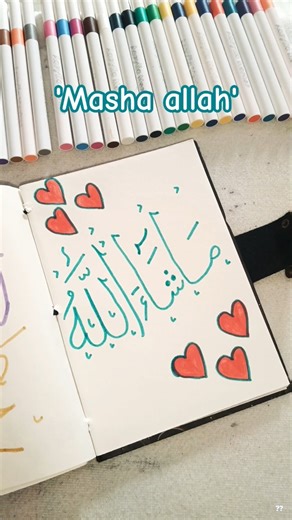 'Masha allah'
ما شاءَ اللّٰهُ
??